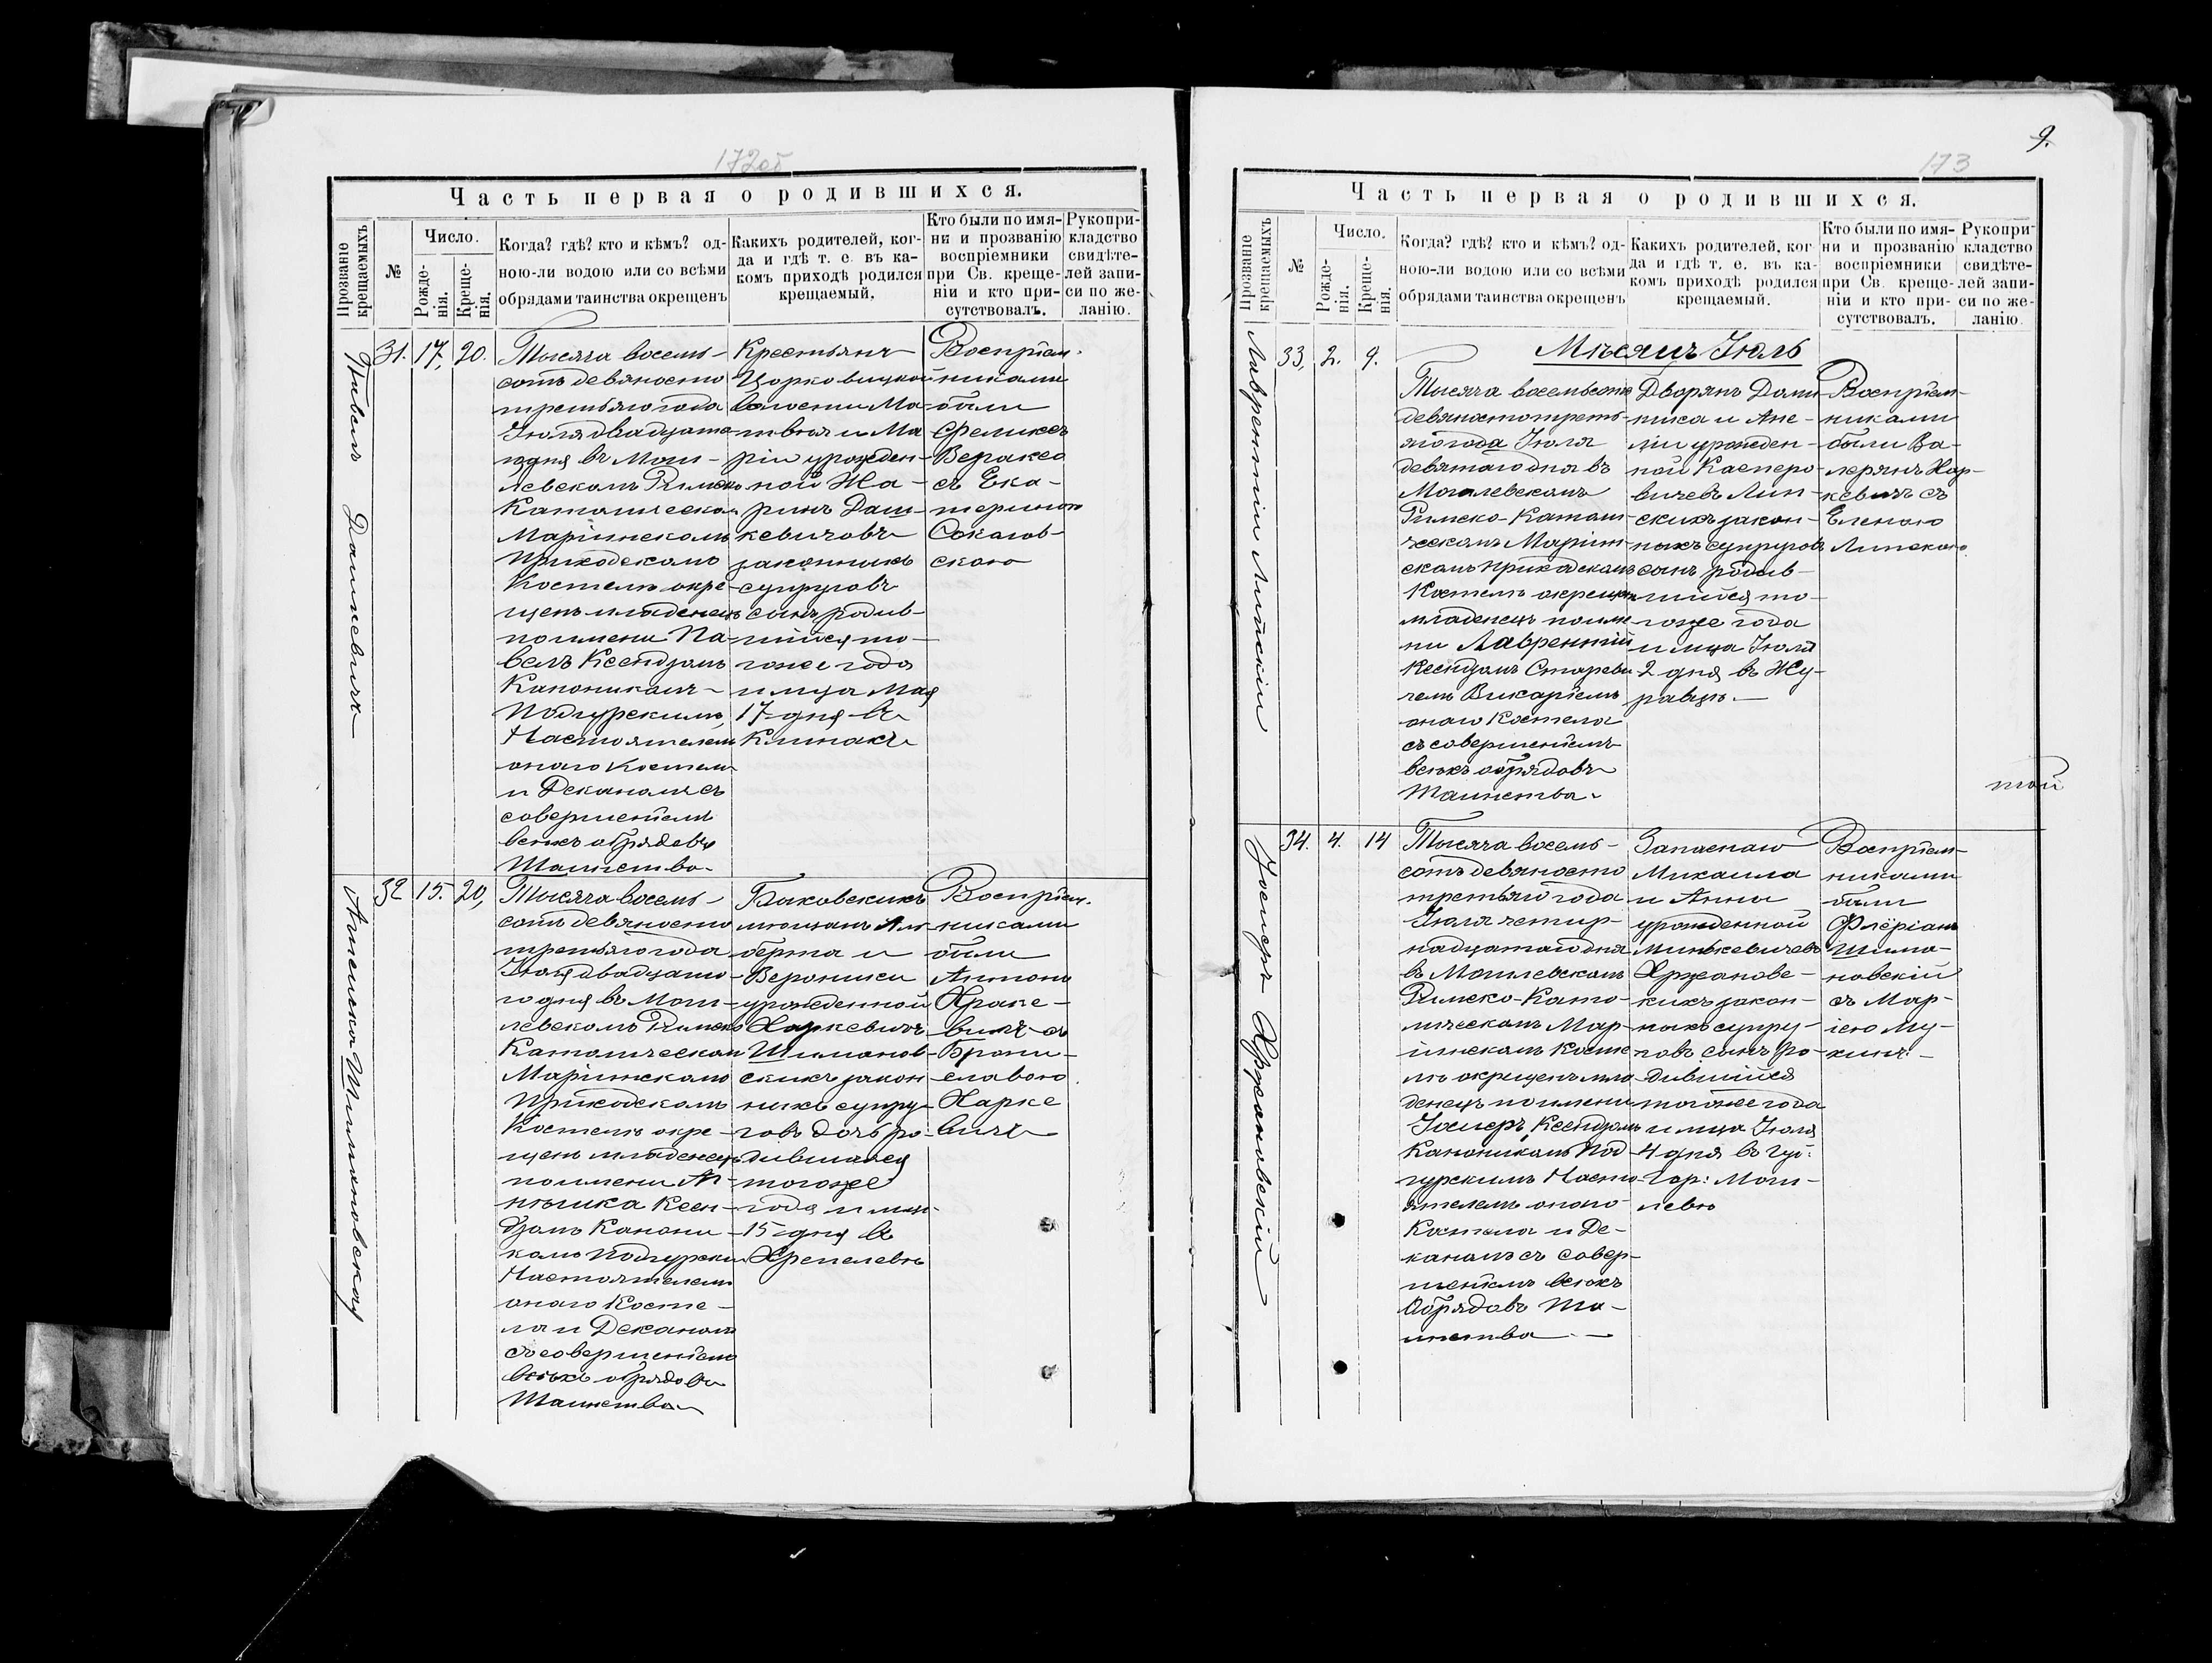 172об
Часть первая о родившихся.
Прозваніе крещаемыхъ
№
Число.
Рожде-
нія.
Креще-
нія.
Когда? гдѣ? кто и кѣмъ? од-
ною-ли водою или со всѣми
обрядами таинства окрещенъ
Какихъ родителей, ког-
да и гдѣ т. е. въ ка-
комъ приходѣ родился
крещаемый.
Кто были по имя-
ни и прозванію
воспріемники
при Св. креще-
ніи и кто при-
сутствовалъ.
Рукопри-
кладство
свидѣте-
лей запи-
си по же-
ланію.
Павелъ Дашкевичъ
31. 17. 20.
Тысяча восемь-
сотъ девяносто
третьяго года
Іюля двадцата-
го дня въ Моги-
левскомъ Римско
Католическомъ
Маріинскомъ
приходскомъ
Костелѣ окре-
щенъ младенецъ
по имени Па-
велъ Ксендзомъ
Каноникомъ
Подгурскимъ,
Настоятелемъ
онаго Костела
и Деканомъ съ
совершеніемъ
всѣхъ обрядовъ
Таинства.
Крестьянъ
волости Ма-
твѣя и Ма
ріи урожден-
ной Жа-
ринъ Даш-
кевичовъ
законныхъ
супруговъ
сынъ родив-
шійся то-
гоже года
и м-ца Мая
17 дня въ
Климахъ
Воспріем-
никами
были
Феликсъ
съ Ека-
териною
Соколов-
скою
Анѣлика Шимановская
32 15. 20,
Тысяча восемь-
сотъ девяносто
третьяго года
Іюля двадцата-
го дня въ Моги-
левскомъ Римско
Католическомъ
Маріинскомъ
приходскомъ
Костелѣ окре-
щенъ младенецъ
по имени Ан-
нѣлика Ксен-
дзомъ Канони-
комъ Подгурским
Настоятелемъ
онаго Косте-
ла и Деканомъ
съ совершеніемъ
всѣхъ обрядовъ
Таинства
Быховскихъ
мѣщанъ Аль-
берта и
Вероники
урожденной
Харкевичъ
Шиманов-
скихъ закон
ныхъ супру-
говъ дочь ро-
дившаяся
тогоже
года и м-ца
15 дня въ
Хрепелевѣ
Воспріем-
никами
были
Антонъ
Храпе-
вичъ съ
Брони-
славою
Харке
вичъ
9.
173
Часть первая о родившихся.
Прозваніе крещаемыхъ
№
Число.
Рожде-
нія.
Креще-
нія.
Когда? гдѣ? кто и кѣмъ? од-
ною-ли водою или со всѣми
обрядами таинства окрещенъ
Какихъ родителей, ког
да и гдѣ т. е. въ ка-
комъ приходѣ родился
крещаемый.
Кто были по имя-
ни и прозванію
воспріемники
при Св. креще-
ніи и кто при-
сутствовалъ.
Рукопри-
кладство
свидѣте-
лей запи-
си по же-
ланію.
Мѣсяцъ Іюль
Лаврентій Липскій
33, 2. 9.
Тысяча восемьсотъ
девяностотреть-
яго года Іюля
девятаго дня въ
Могилевскомъ
Римско-Католи-
ческомъ Маріин-
скомъ приходскомъ
Костелѣ окрещенъ
младенецъ по име
ни Лаврентій
Ксендзомъ Стареви
чемъ Викаріемъ
онаго Костела
съ совершеніемъ
всѣхъ обрядовъ
Таинства.
Дворянъ Доми-
ника и Ане-
ліи урожден-
ной Касперо-
вичевъ Лип-
скихъ закон-
ныхъ супруговъ
сынъ родив-
шійся то-
гоже года
и м-ца Іюля
2 дня въ Жу-
равцѣ.
Воспріем-
никами
были Ва-
лерянъ Хар-
кевичъ съ
Еленою
Липскою.
той
Іосифъ Хржановскій
34. 4. 14
Тысяча восемь-
сотъ девяносто
третьяго года
Іюля четыр-
надцатаго дня
въ Могилевскомъ
Римско-Като-
лическомъ Мар-
іинскомъ Косте
лѣ окрещенъ мла
денецъ по имени
Іосифъ, Ксендзомъ
Каноникомъ Под-
гурскимъ Насто-
ятелемъ онаго
Костела и Де-
каномъ съ совер-
шеніемъ всѣхъ
Обрядовъ Та-
инства
Запаснаго
Михаила
и Анны
урожденной
Минькевичевъ
Хржановс-
кихъ закон-
ныхъ супру-
говъ сынъ ро-
дившійся
тогоже года
и м-ца Іюля
4 дня въ Гу:
Гор: Моги-
левѣ
Воспріем-
никами
были
Флёріанъ
Шима-
новскій
съ Мар-
іею Му-
хинъ.